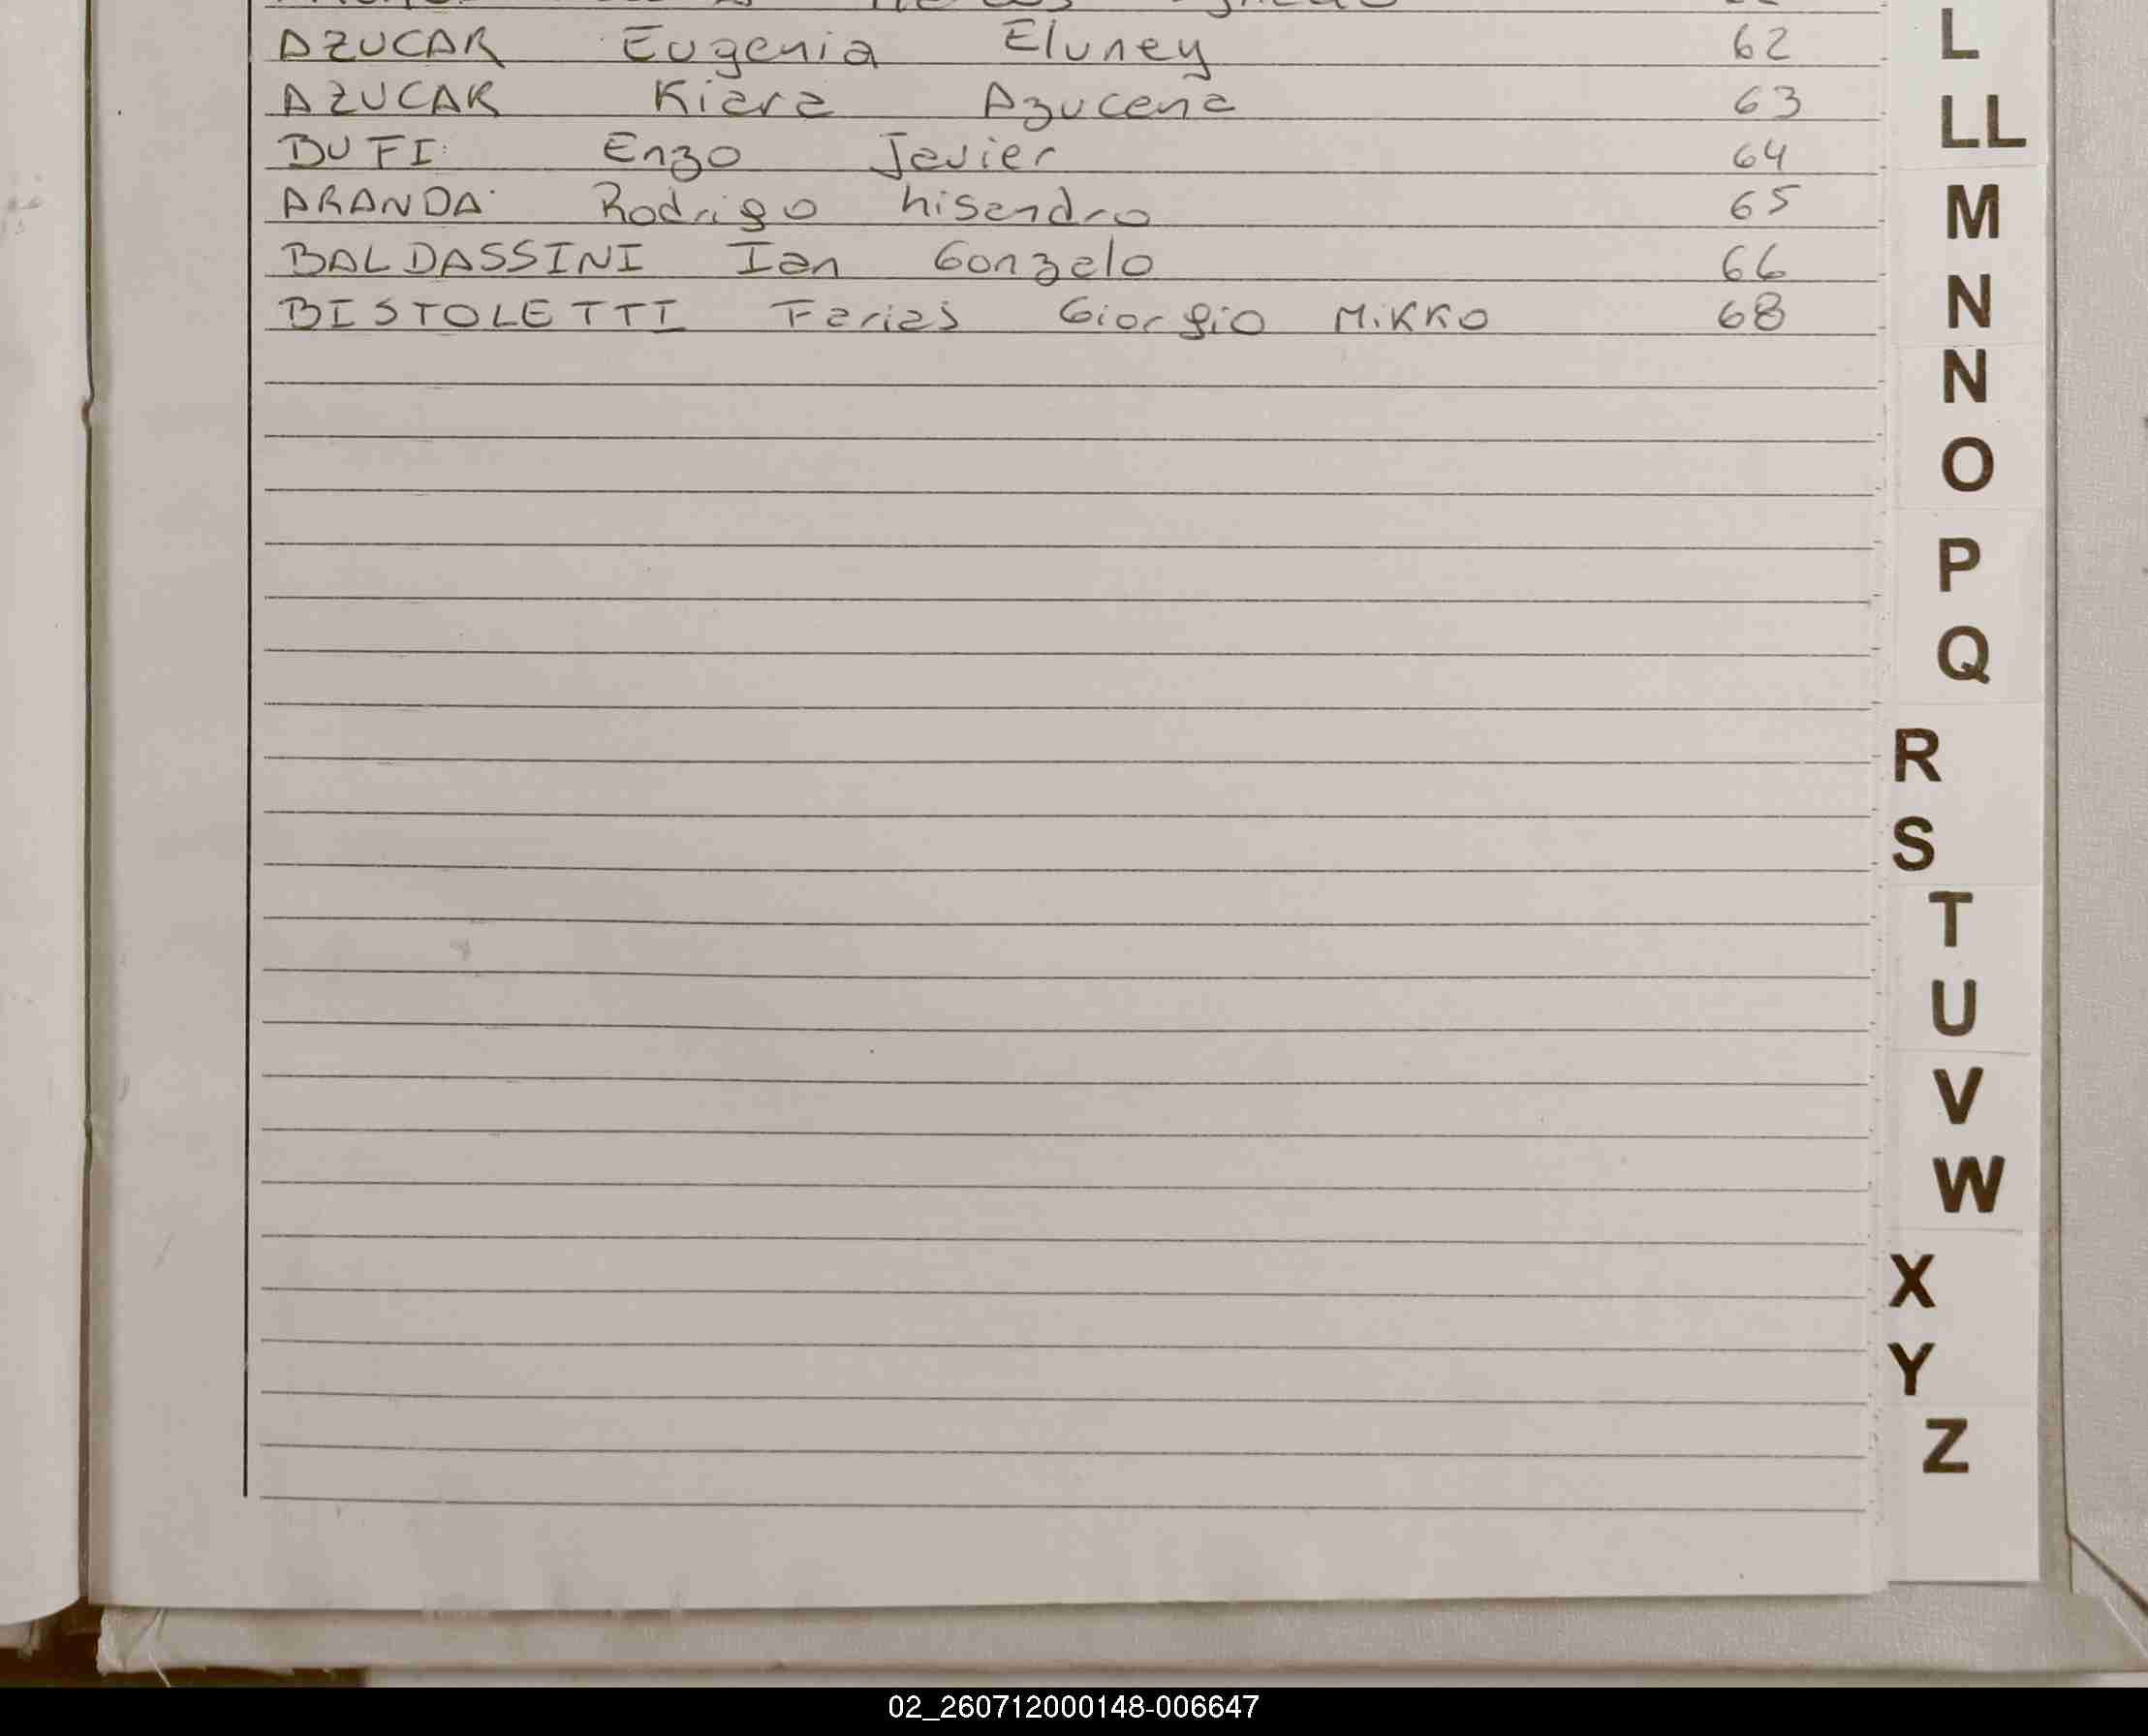 AZUCAR Eugenia Eluney 62
AZUCAR Kiara Azucena 63
BUFI Enzo Javier 64
ARANDA Rodrigo Lisandro 65
BALDASSINI Ian Gonzalo 66
BISTOLETTI Farias Giorgio Mikko 68
L
LL
M
N
N
O
P
Q
R
S
T
U
V
W
X
Y
Z
02_260712000148-006647